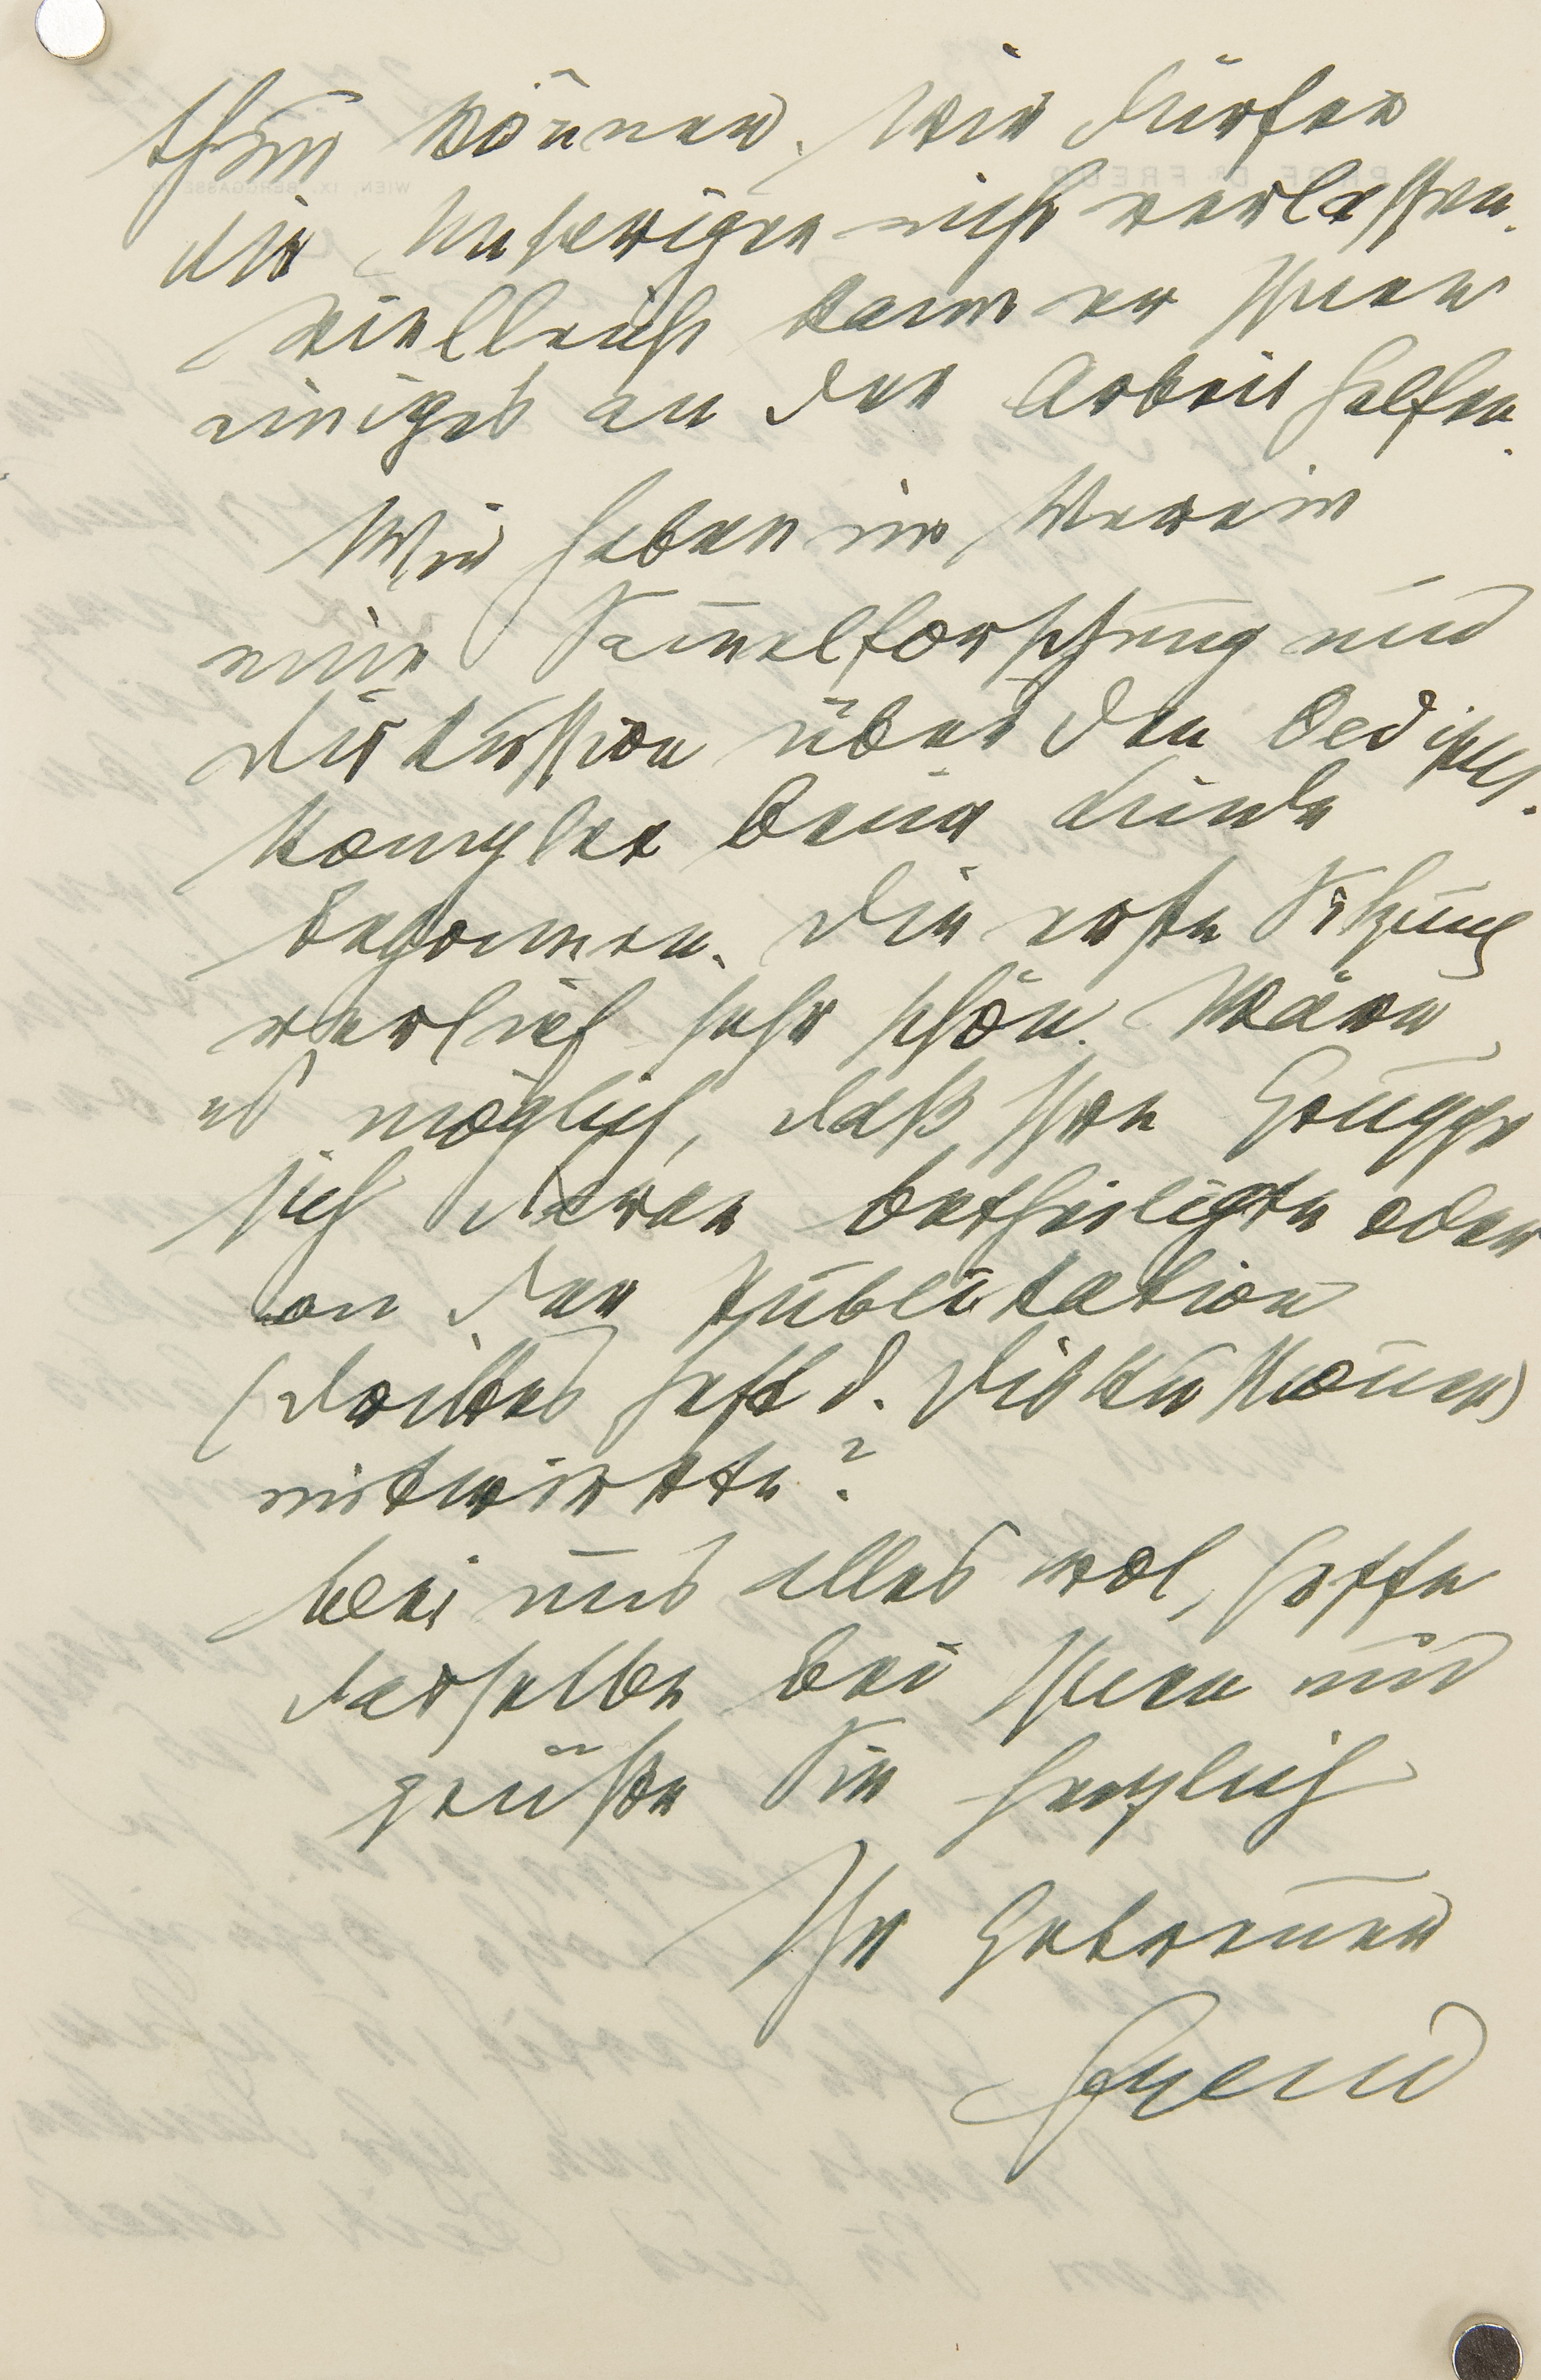 thun können. Wir dürfen
die Unserigen nicht verlassen.
Vielleicht kann er Ihnen
einiges an der Arbeit helfen.
Wir haben im Verein
eine Sam̅elforschung und
Diskussion über den Oedipus-
komplex beim Kinde
begonnen. Die erste Sitzung
verlief sehr schön. Wäre
es möglich, daß Ihre Gruppe
sich daran betheiligte oder
an der Publikation
(drittes Heft d. Diskussionen)
mitwirkte?
Bei uns alles wol, hoffe
dasselbe bei Ihnen und
grüße Sie herzlich
Ihr getreuer
Freud